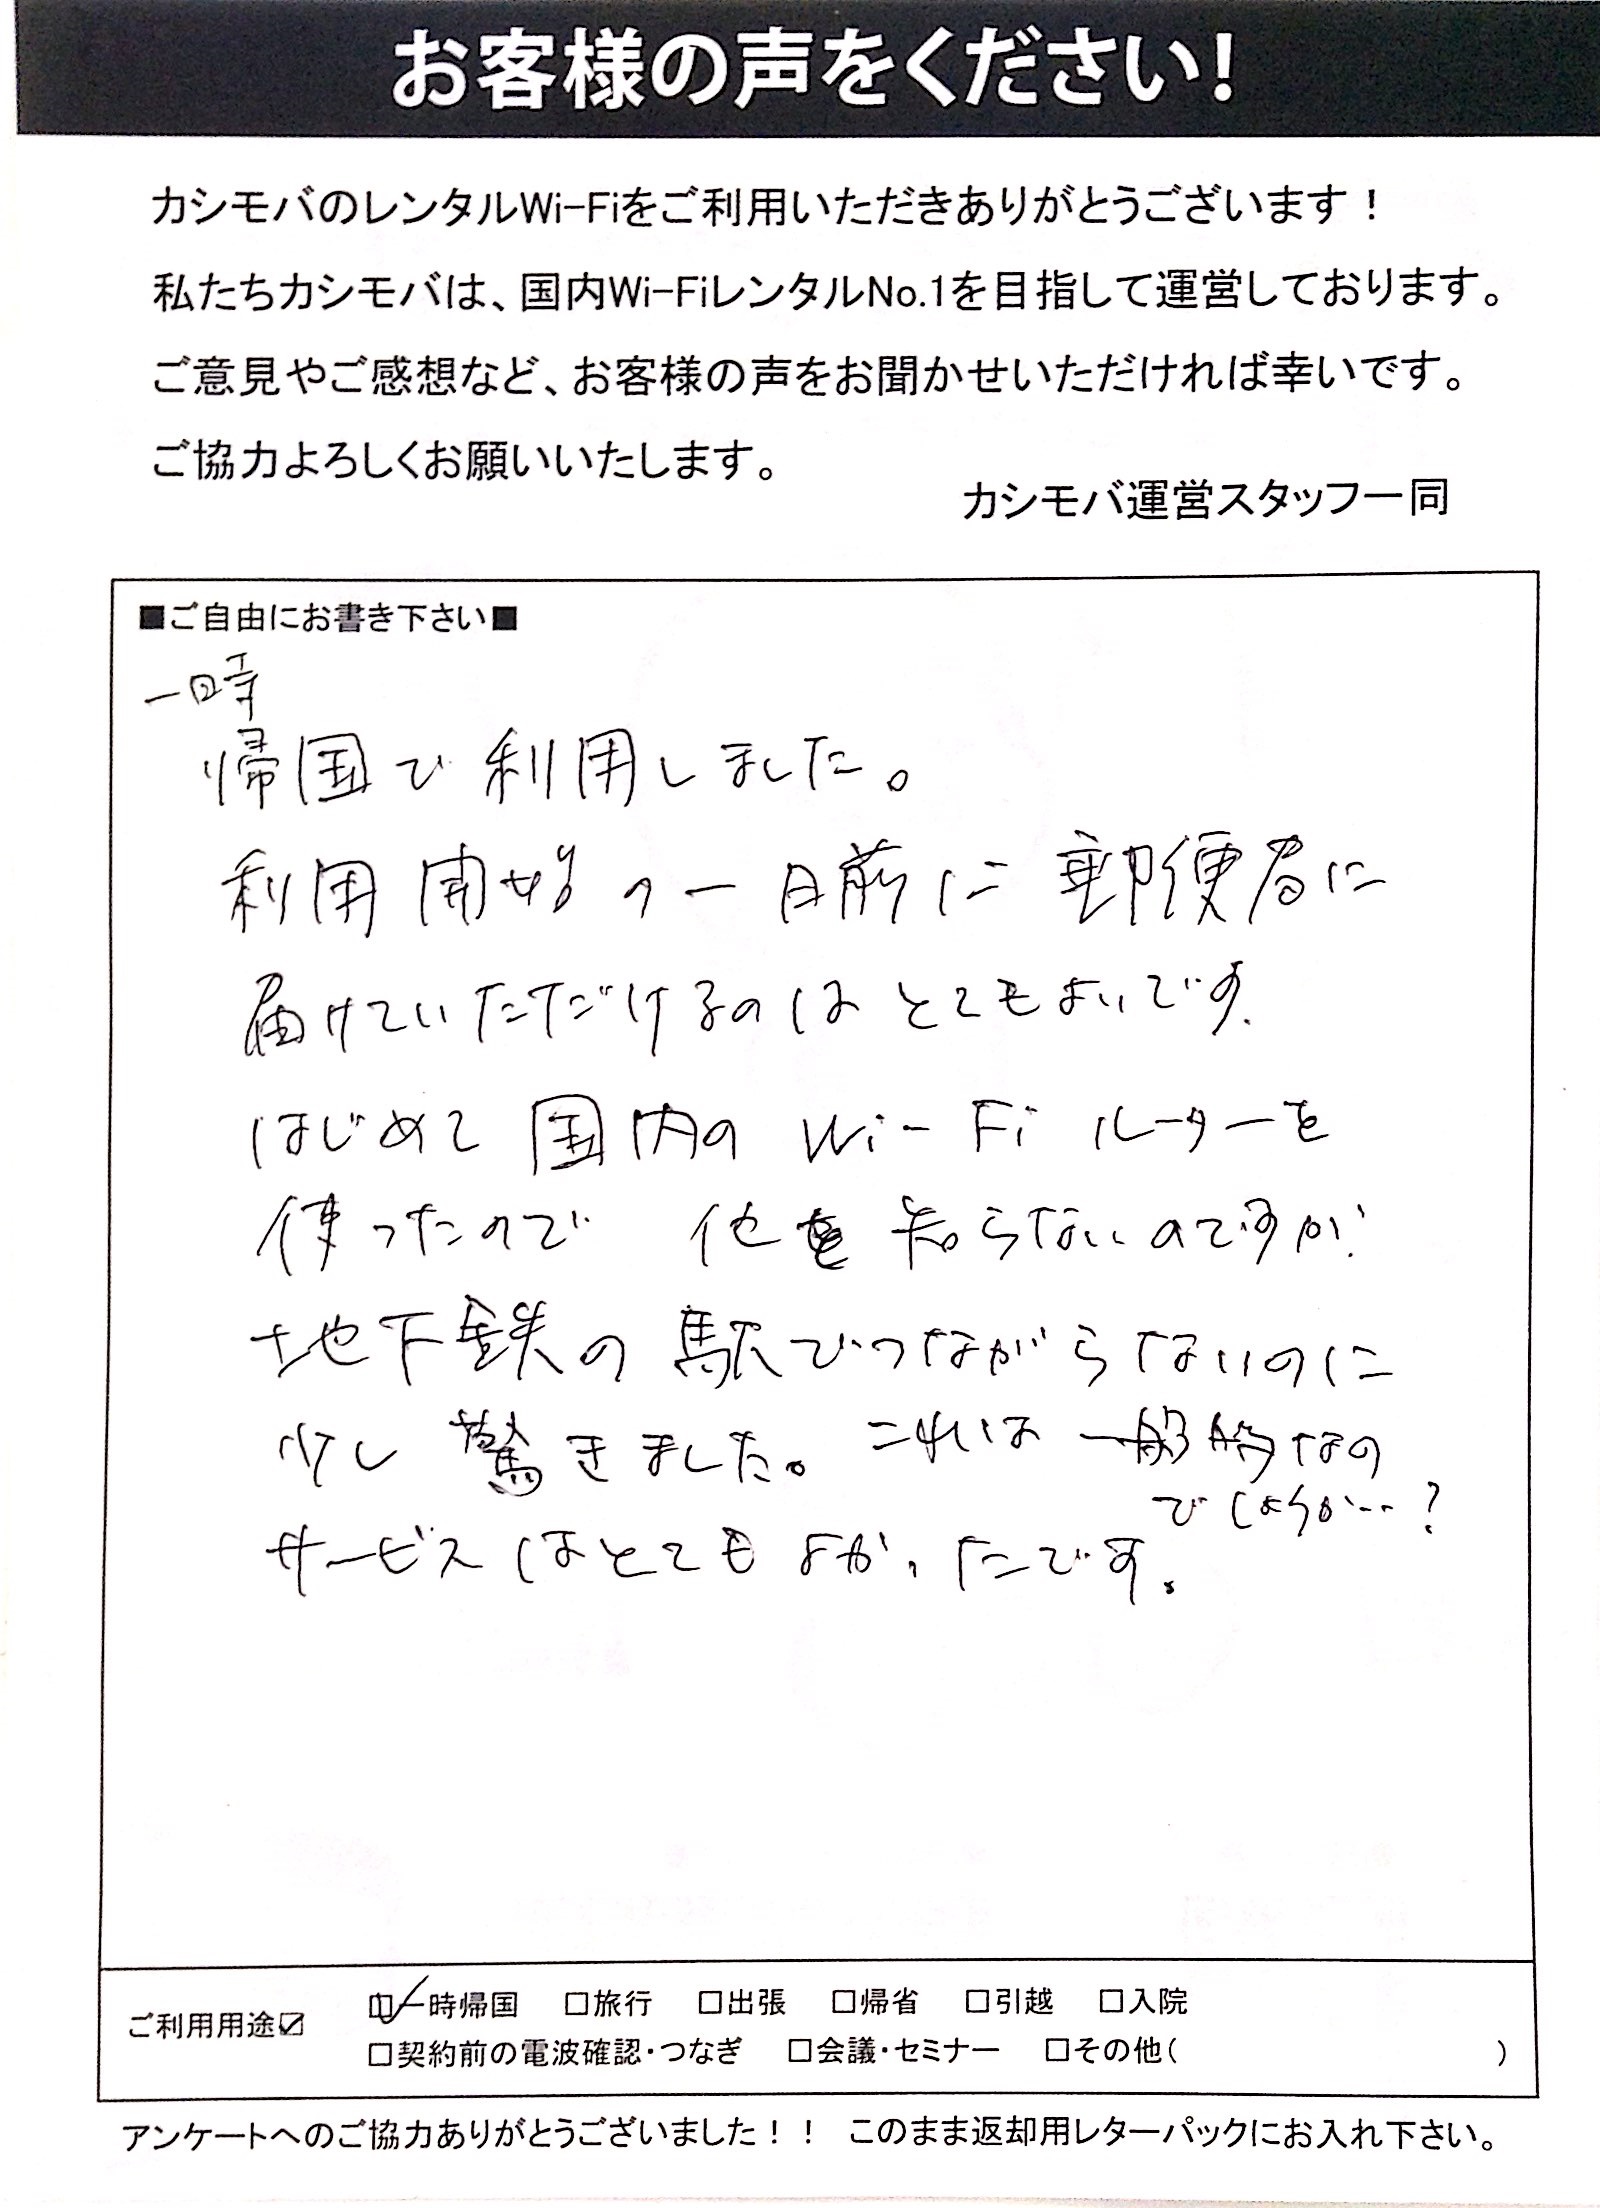 お客様の声をください!
カシモバのレンタルWi-Fiをご利用いただきありがとうございます！
私たちカシモバは、国内Wi-FiレンタルNo.1を目指して運営しております。
ご意見やご感想など、お客様の声をお聞かせいただければ幸いです。
ご協力よろしくお願いいたします。
カシモバ運営スタッフ一同
■ご自由にお書き下さい■
一時
帰国で利用しました。
利用開始の一日前に郵便局に
届けていただけるのはとてもよいです.
はじめて国内のWi-Fiルーターを
使ったので他を知らないのですが.
地下鉄の駅でつながらないのに
少し驚きました。これは一般的なの
でしょうか…?
サービスはとてもよかったです.
ご利用用途☑ ☑一時帰国 □旅行 □出張 □帰省 □引越 □入院
□契約前の電波確認・つなぎ □会議・セミナー □その他( )
アンケートへのご協力ありがとうございました！！ このまま返却用レターパックにお入れ下さい。